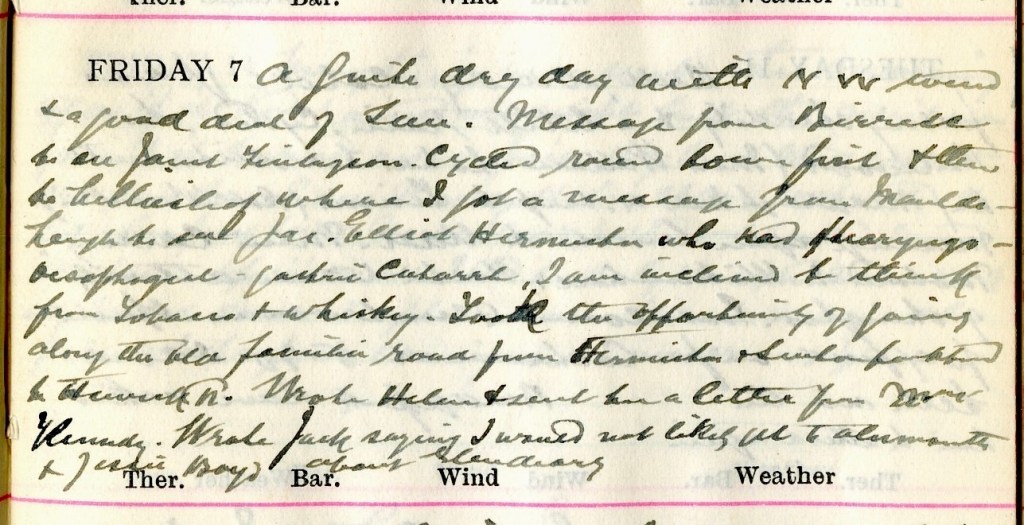 Ther. Bar. Wind Weather
FRIDAY 7 A quite dry day with N W wind
& a good deal of Sun. Message from Birrell
to see Janet Finlayson. Cycled round town first & then
to where I got a message from
to see Jas. Elliot Hermiston who had pharyngo-
oesophageal-gastric Catarrh, I am inclined to think
from Tobacco & whisky. Took the opportunity of going
along the old familiar road from Hermiston &
to Hawick. Wrote Helen & sent her a letter from Mrs
Kennedy. Wrote Jack saying I would not likely get to Alnmouth
& Jessie Boyd about Glendearg
Ther. Bar. Wind Weather